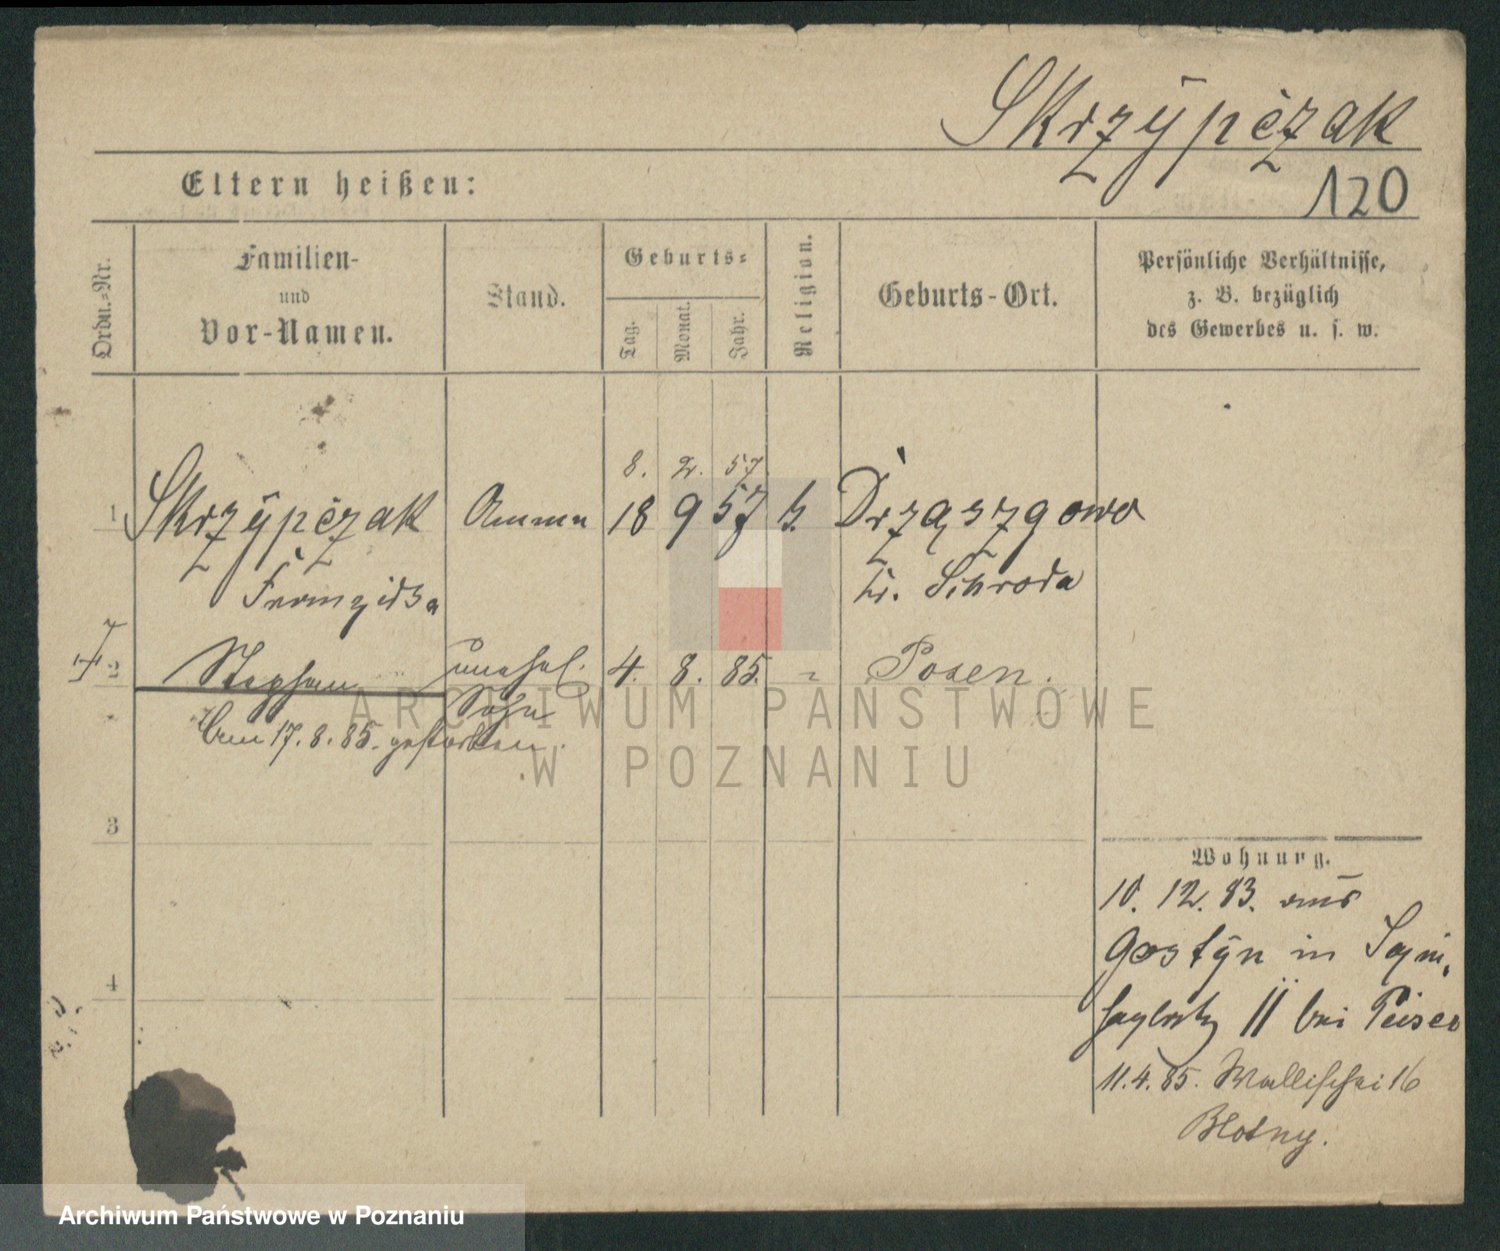 Skrzypczak
Eltern heißen:
120
Ordn.=Nr.
Familien-
und
Vor-Namen.
Stand.
Geburts=
Tag.
Monat.
Jahr.
Religion.
Geburts-Ort.
Persönliche Verhältnisse,
z. B. bezüglich
des Gewerbes u. s. w.
8. 2. 57
1 Skrzypczak Amme 18 9 57 k. Drzązgowo
Franziska Kr. Schroda
2 Stephan unehel. 4. 8. 85. " Posen.
Sohn
Am 17.8.85. gestorben.
ARCHIWUM PAŃSTWOWE
W POZNANIU
3
Wohnung.
10. 12. 83. aus
Gostyn in
4
II bei Peiser
11.4.85. Wallischei 16
Blotny.
Archiwum Państwowe w Poznaniu